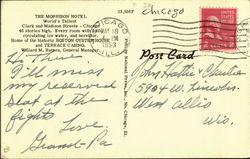 Chicago
THE MORRISON HOTEL
World's Tallest
Clark and Madison Streets - Chicago
46 stories high. Every room with bath,
circulating ice water, and servidor.
Home of the historic BOSTON OYSTER HOUSE
and TERRACE CASINO.
William H. Rogers, General Manager
CHICAGO
MAY 18
PM
1953
Post Card
Hi-There
I'll miss
my reserved
seat at the
fights
Love
Gramd-Pa
John, Hattie & Charlie
5904 W. Lincoln
West Allis
Wis.